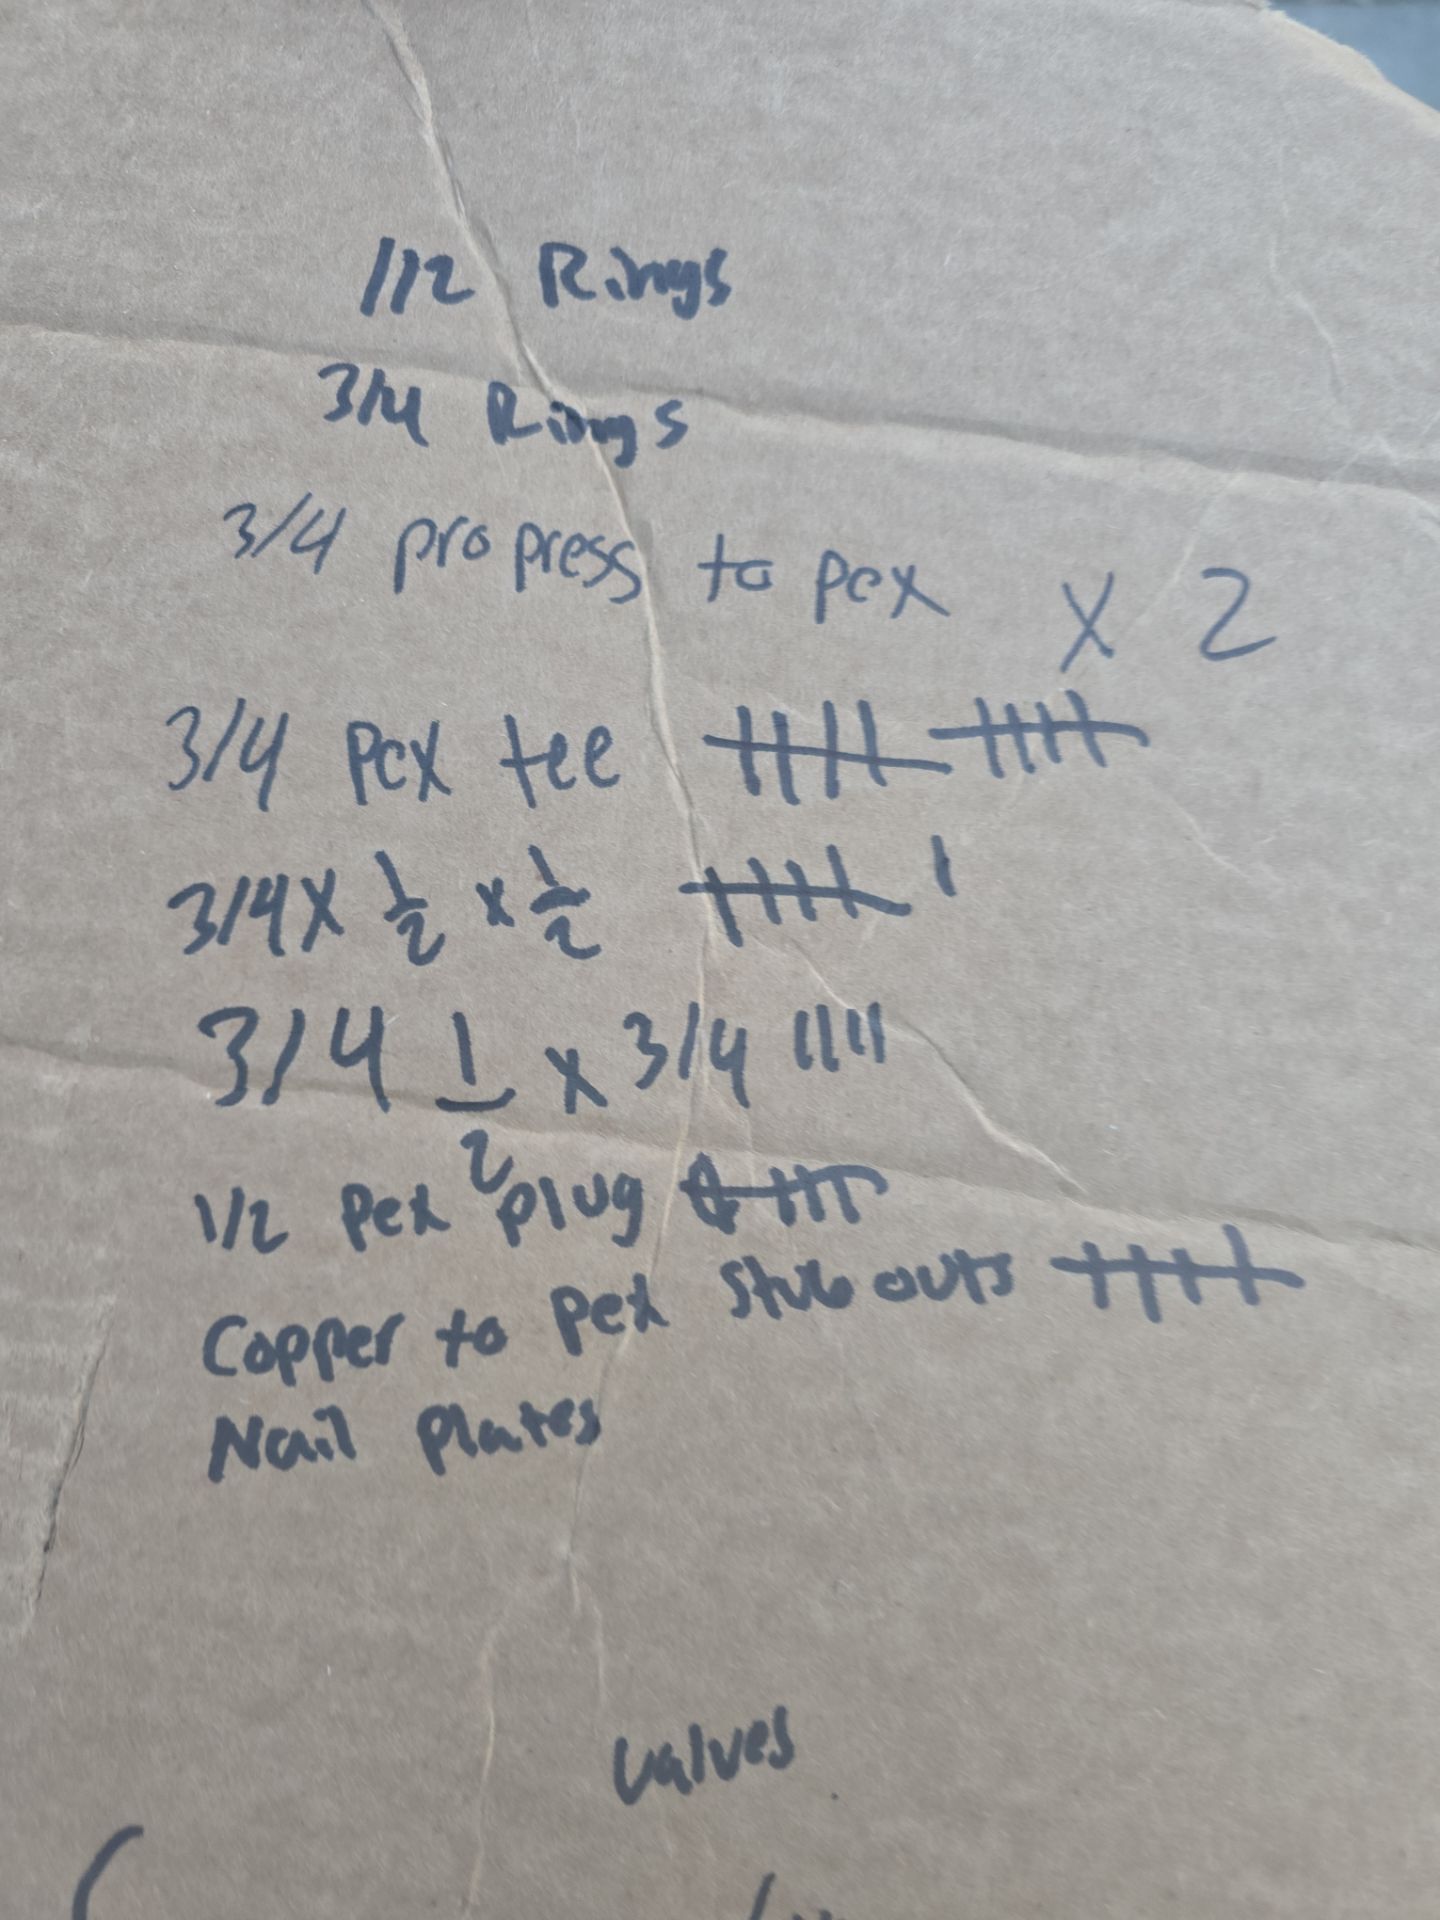 1/2 Rings
3/4 Rings
3/4 pro press to pex x 2
3/4 Pex tee
3/4 x 1/2 x 1/2
3/4 1/2 x 3/4 ||||
1/2 Pex plug
Copper to pex stub outs
Nail plates
valves